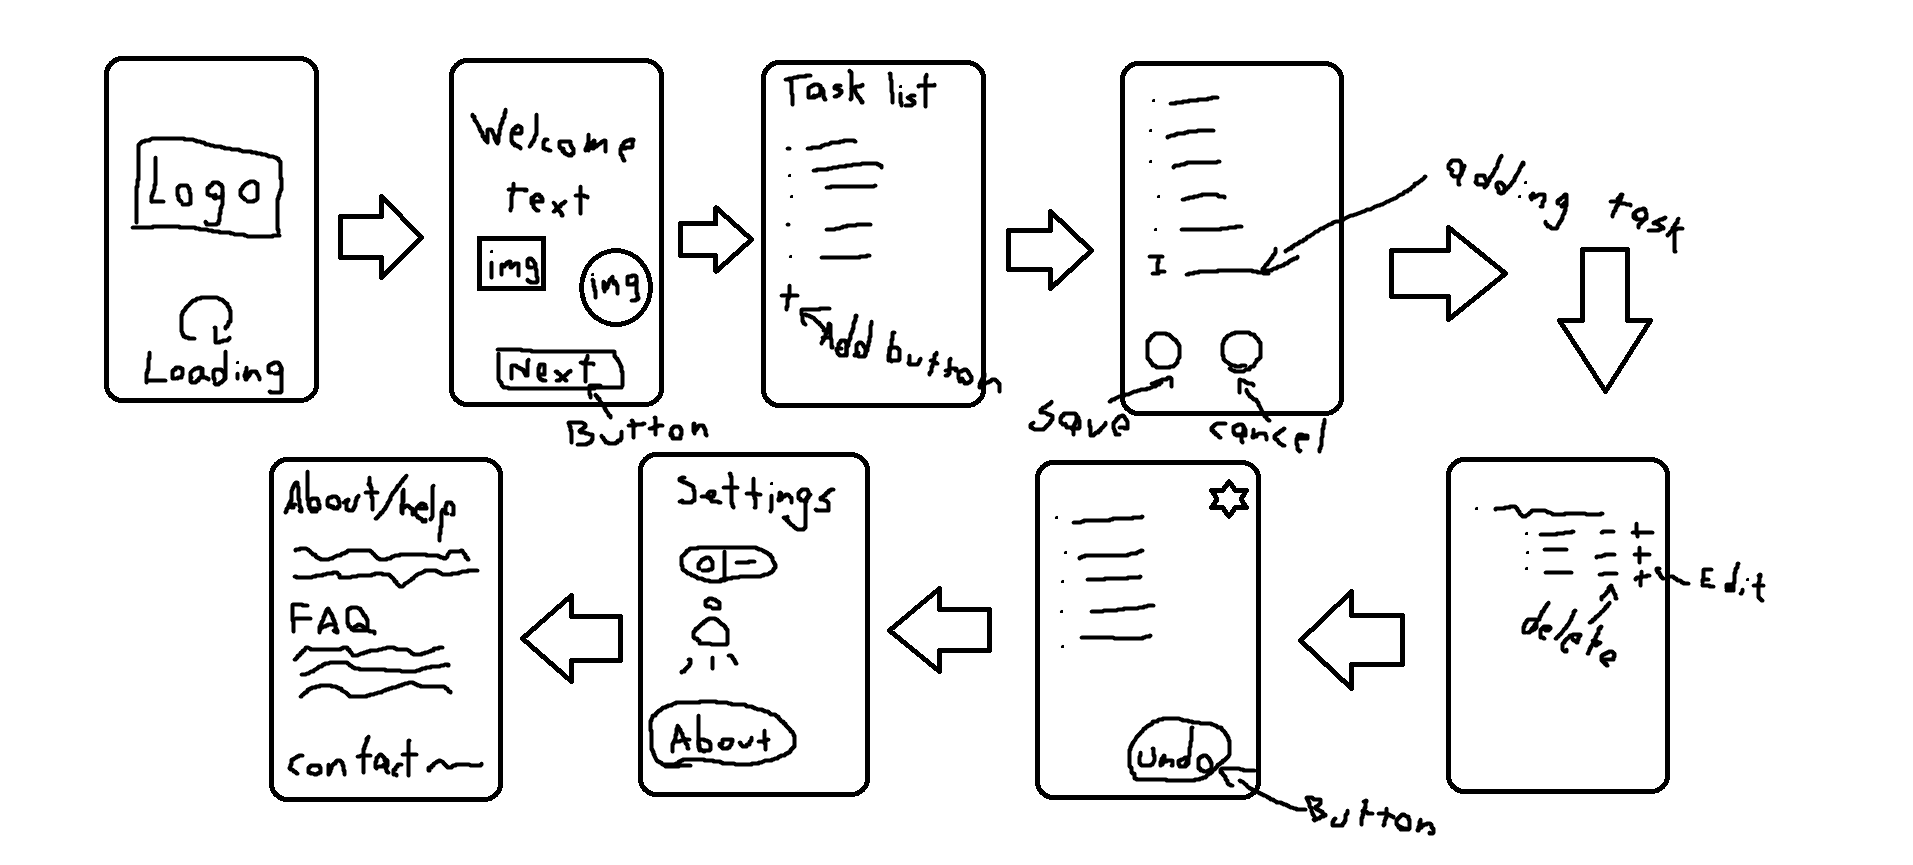 Logo
Loading
Welcome
text
img
img
Next
Button
Task list
+
Add button
I
adding task
save
cancel
- +
- +
- +
Edit
delete
undo
Button
Settings
O|-
About
About/help
FAQ
contact